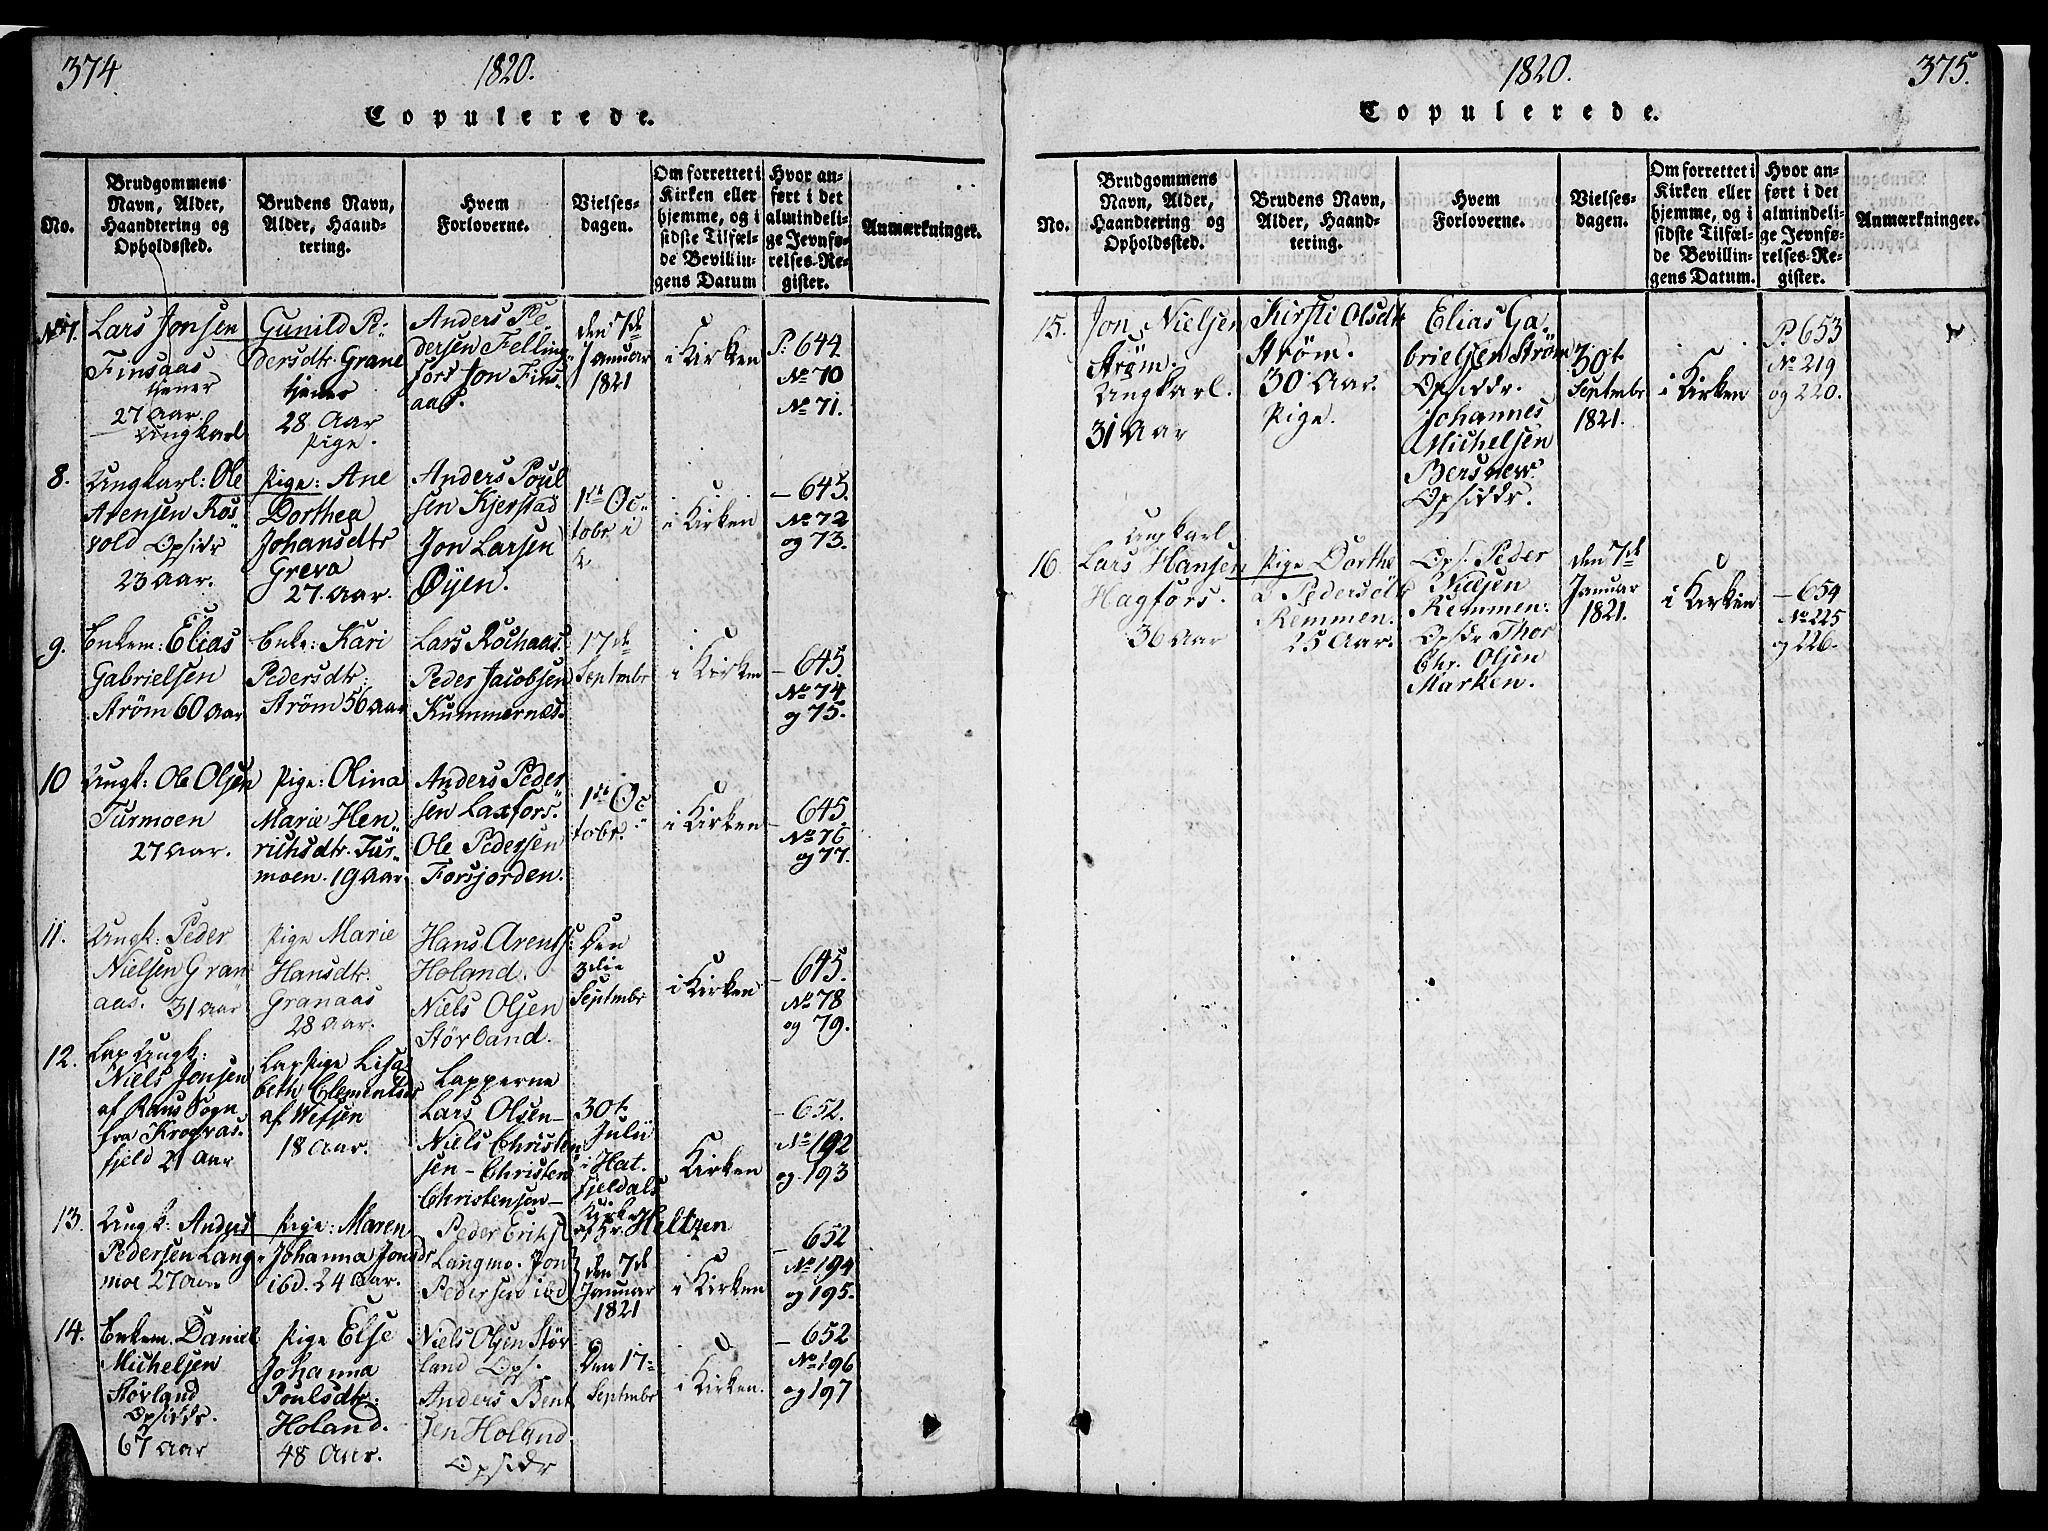 374.
1820.
Copulerede.
No.
Brudgommens
Navn, Alder,
Haandtering og
Opholdssted.
Brudens Navn,
Alder, Haand-
tering.
Hvem
Forloverne.
Vielses-
dagen.
Om forrettet i
Kirken eller
hjemme, og i
sidste Tilfæl-
de Bevillin-
gens Datum
Hvor an-
ført i det
almindeli-
ge Jevnfø-
relses-Re-
gister.
Anmærkninger.
No 7.
Lars Jonsen
Finsaas
tjener
27 Aar.
Ungkarl
Gunild Pe-
dersdtr Grane
tjener
28 Aar
Pige.
Anders Pe-
dersen Felling-
fors Jon Fins-
aas.
den 7de
Januar
1821
i Kirken
P. 644
No 70
No 71.
8.
Ungkarl: Ole
Arensen Kos-
vold Opsidr
23 Aar.
Pige: Ane
Dorthea
Johansdtr
Greva
27. Aar.
Anders Poul
sen Kjerstad
Jon Larsen
Øyen.
1ste Oc-
tobr i
i Kirken
— 645.
No 72
og 73.
9.
Enkem: Elias
Gabrielsen
Strøm 60 Aar
Enke: Kari
Pedersdtr:
Strøm 56 Aar
Lars Rochaas.
Peder Jacobsen
Kummernæs.
17de
Septmbr
i Kirken
— 645.
No 74
og 75.
10
Ungk: Ole Olsen
Turmoen
27 Aar.
Pige: Olina
Marie Hen-
richsdtr. Tur-
moen. 19 Aar
Anders Peder
sen Laxfors.
Ole Pedersen
Forsjorden.
1ste Oc-
tobr.
i Kirken
— 645.
No 76
og 77.
11.
Ungk: Peder
Nielsen Gran
aas. 31 Aar
Pige Marie
Hansdtr.
Granaas
28 Aar.
Hans Arents:
Holand.
Niels Olsen
Størland.
Den
3die
Septmbr
i Kirken
— 645.
No 78
og 79.
12.
Lap Ungk:
Niels Jonsen
af Rans Sogn
fra Krogvas-
fjeld 21 Aar
Lap Pige Lisa-
beth Clementsdr
af Wefsen
18 Aar.
Lapperne
Lars Olsen—
Niels Christen
sen — Christen
Christensen —
30t.
Julii
i Hat-
fjeldals
Kirke
af Hr. Heltzen
Kirken
— 652.
No 192
og 193
13.
Ungk: Anders
Pedersen Lang-
moe 27 Aar
Pige: Maren
Johanna Jonsdr
ibd. 24 Aar.
Peder Eriks:
Langmo. Jon
Pedersen ibd
den 7de
Januar
1821
i Kirken
— 652
No 194
og 195.
14.
Enkem. Daniel
Michelsen
Størland
Opsiddr.
67 Aar
Pige Else
Johanna
Poulsdtr:
Holand.
48 Aar.
Niels Olsen Stør
land Ops.
Anders Bent
sen Holand
Opsidr
Den 17-
Septmbr
i Kirken.
— 652
No 196
og 197
1820.
375.
Copulerede.
No.
Brudgommens
Navn, Alder,
Haandtering og
Opholdssted.
Brudens Navn,
Alder, Haand-
tering.
Hvem
Forloverne.
Vielses-
dagen.
Om forrettet i
Kirken eller
hjemme, og i
sidste Tilfæl-
de Bevillin-
gens Datum.
Hvor an-
ført i det
almindeli-
ge Jevnfø-
relses-Re-
gister.
Anmærkninger.
15.
Jon Nielsen
Strøm.
Ungkarl.
31 Aar
Kirsti Olsdtr
Strøm.
30 Aar.
Pige.
Elias Ga-
brielsen Strøm
Opsiddr.
Johannes
Michelsen
Opsiddr.
30t.
Septmbr
1821.
i Kirken
P. 653
No 219
og 220.
16.
Ungkarl
Lars Hansen
Hagfors.
36 Aar
Pige Dorthe
a Pedersdtr
Remmen.
25 Aar.
Ops. Peder
Nielsen
Remmen:
Opsidr Thor
Chr. Olsen
Marken.
den 7de
Januar
1821.
i Kirken
— 654
No 225
og 226.